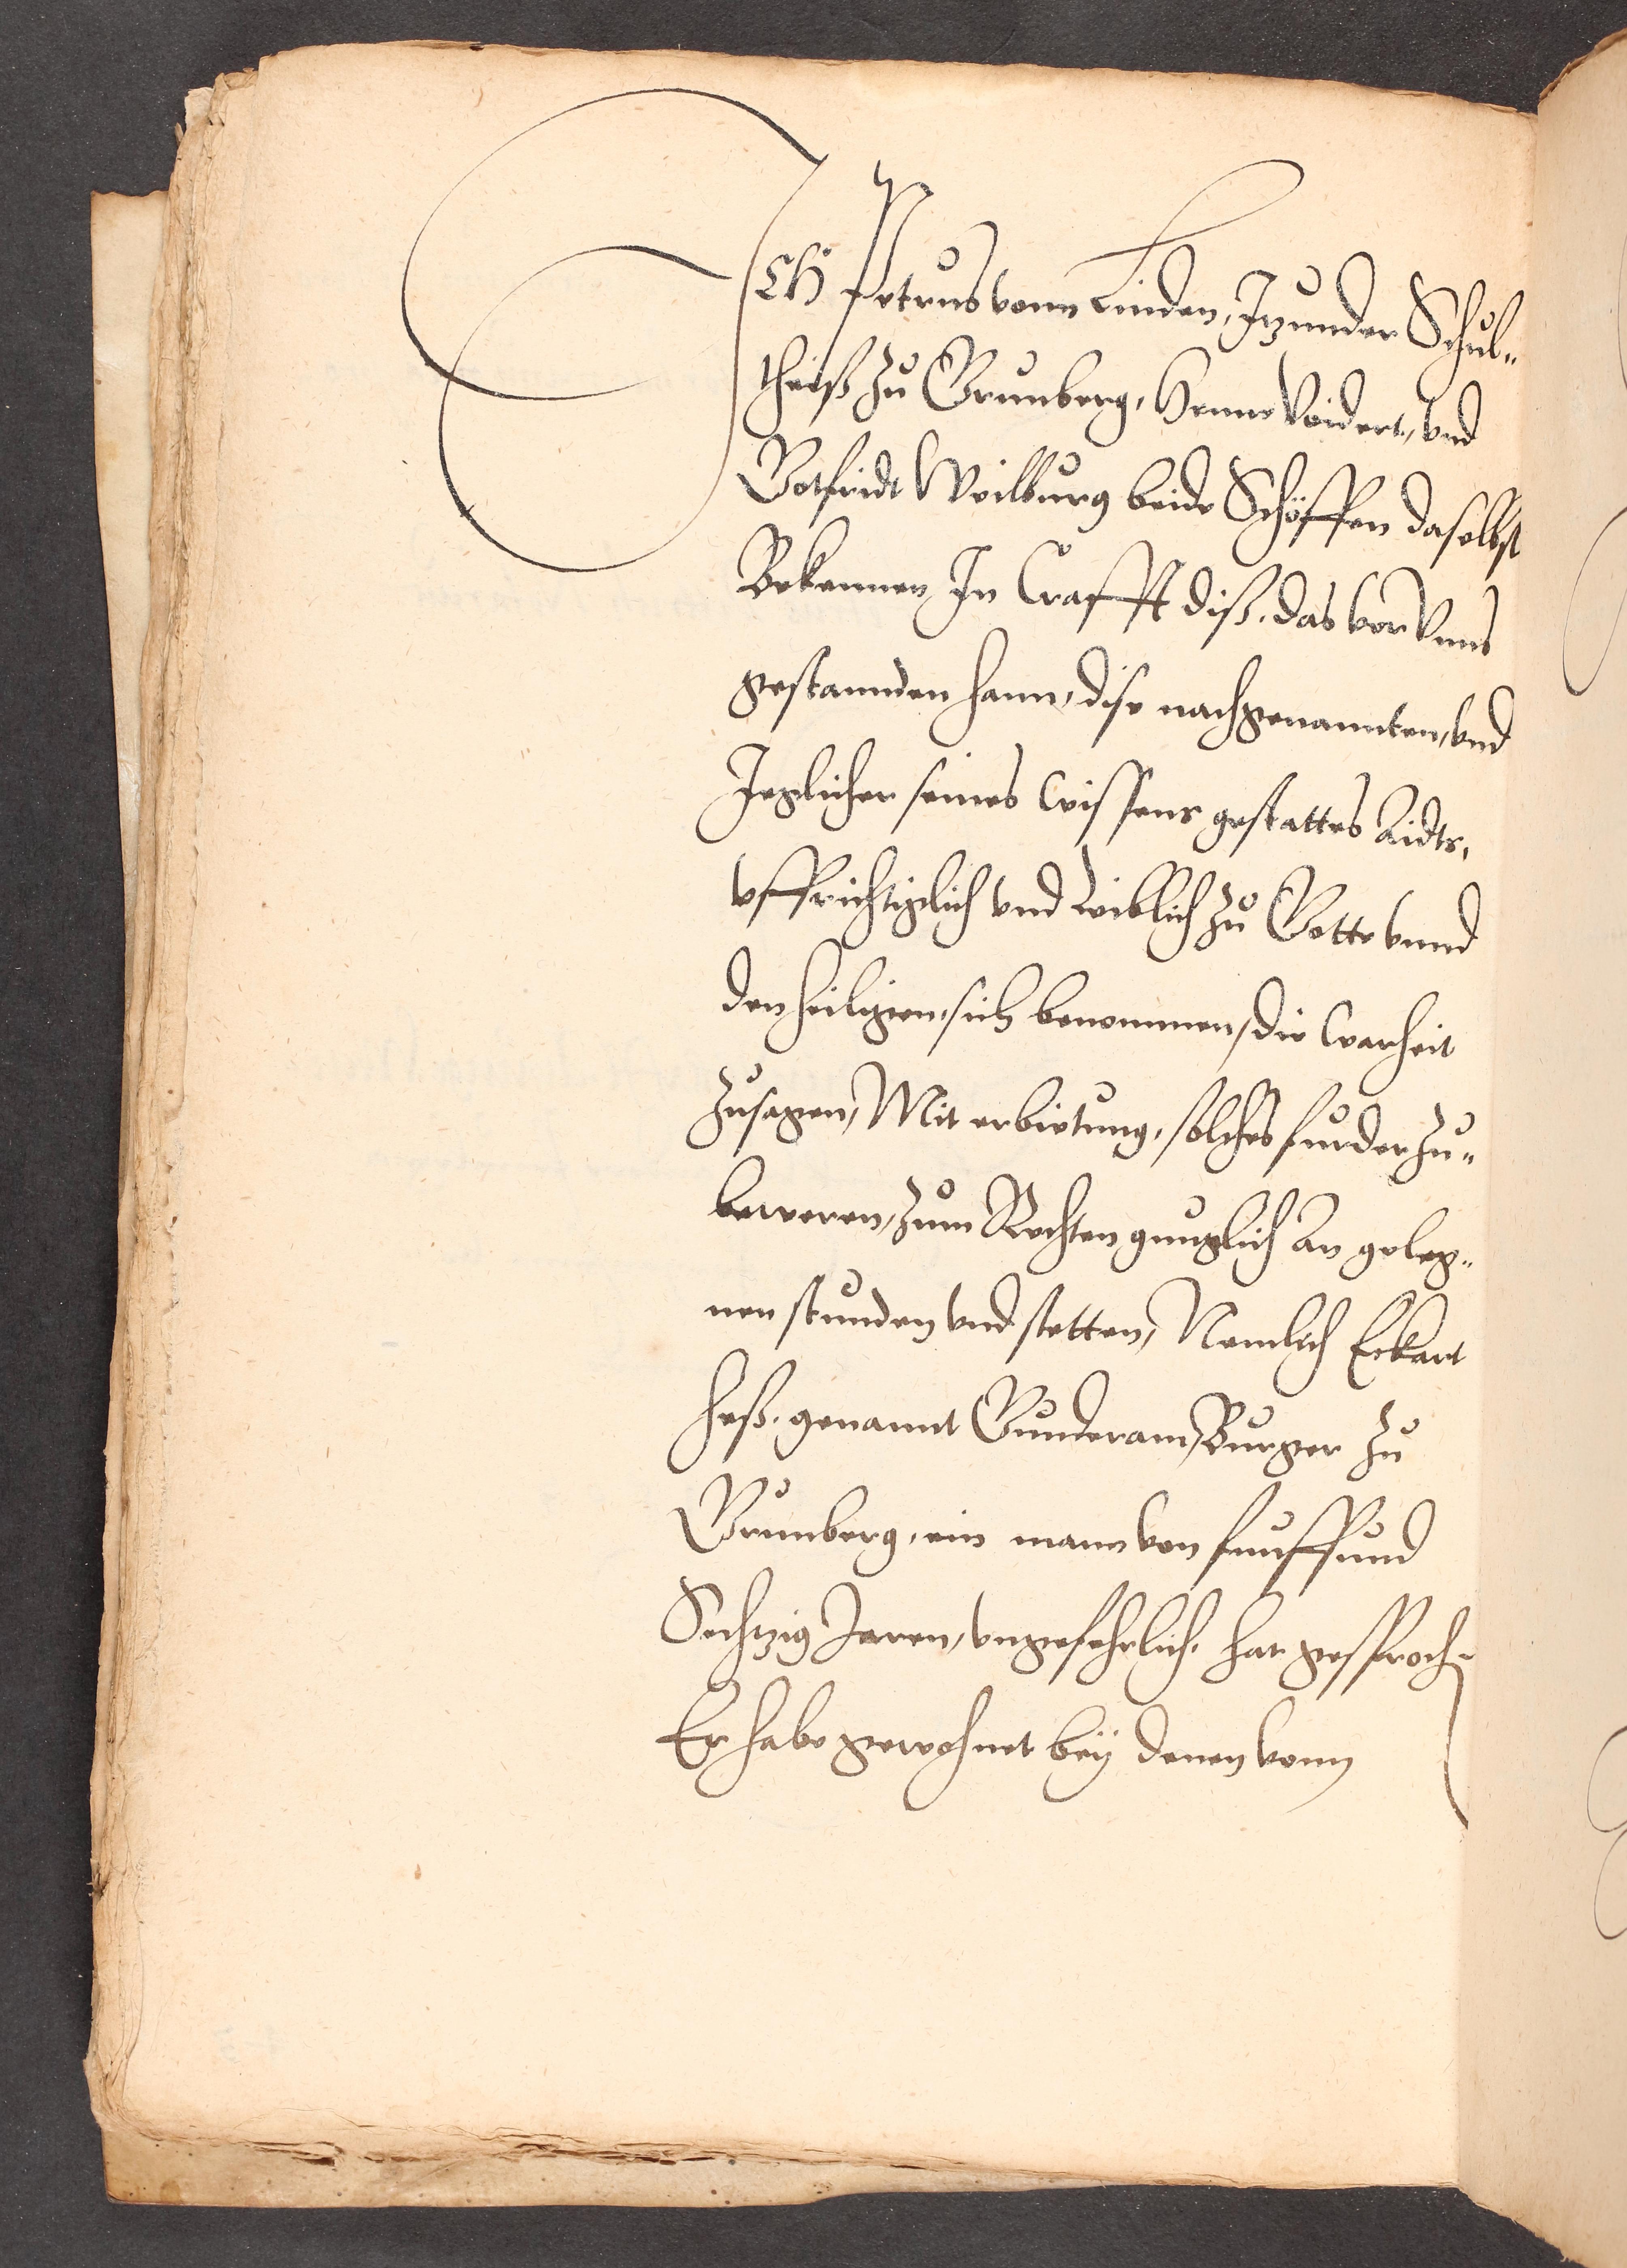 ICH Petrus vonn Linden, Itzunder Schul„
theiß zu Grunberg, Henne Weidert, und
Gotfridt Weilburg beide Schöffen daselbst
Bekennen In Craafft diß, das vor Vnns
gestannden hann, dise nachgenannten, vnd
Jeglicher seines wissens gestattes Aidts,
vffrichtiglich vnd Leiblich zu Gotte vnnd
den heiligen, sich benommen, die warheit
zusagen, Mit erbietung, solches furder zu„
beweren, zum Rechten gnuglich An geleg„
nen stunden vnd stetten, Nemlich Eckart
heß, genannt Gunderam, Burger zu
Grunberg, ein mann von funffund
Sechtzig Jaren, vngefehrlich, hat gesproch–
Er habe gewohnet beÿ denen vonn